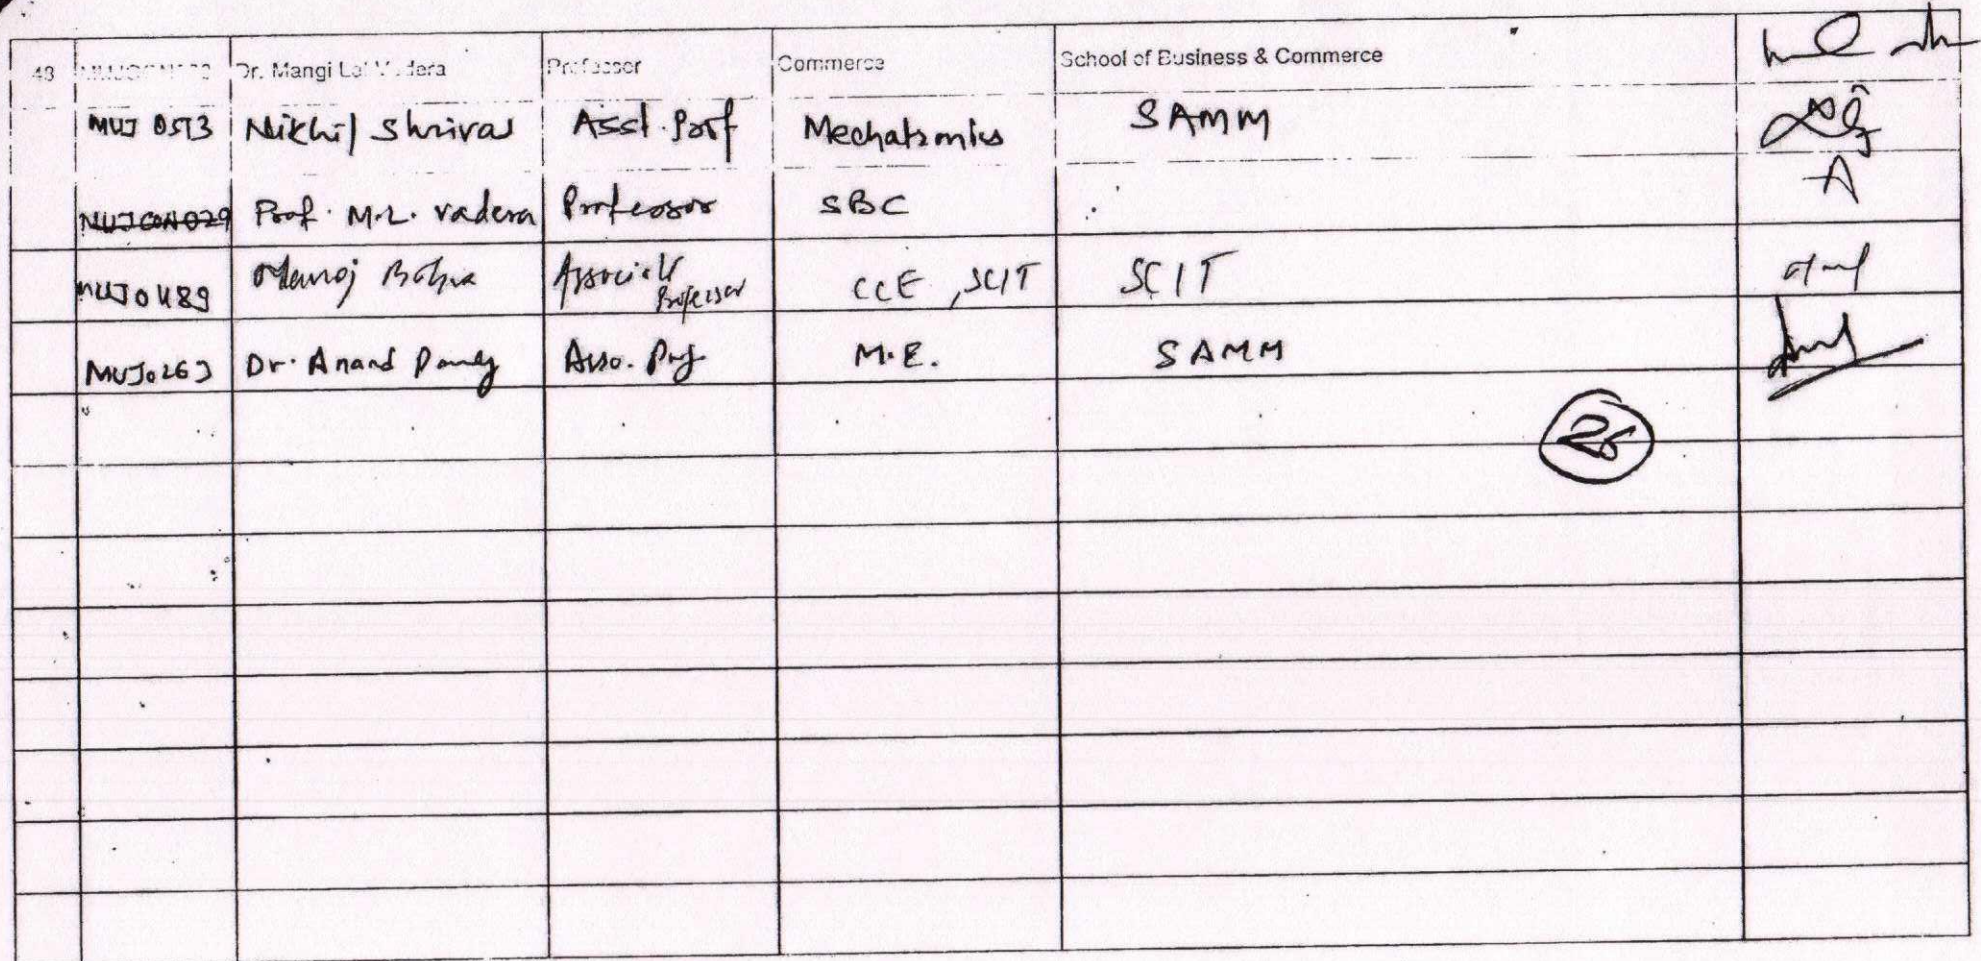 48 Dr. Mangi Lal Vadera Professor Commerce School of Business & Commerce
MUJ 0513 Nikhil Shrivas Asst. Prof Mechatronics SAMM
MUJCON029 Prof. M.L. Vadera Professor SBC
MUJ0489 Manoj Bohra Associate Professor CCE, SCIT SCIT
MUJ0263 Dr. Anand Pandey Asso. Prof M.E. SAMM
26